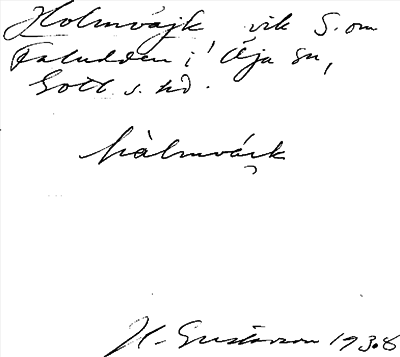 Holmvájk, vik S. om
Faludden i Öja sn,
Gotl. s. hd.
hàlmváik
H. Gustavson 1938